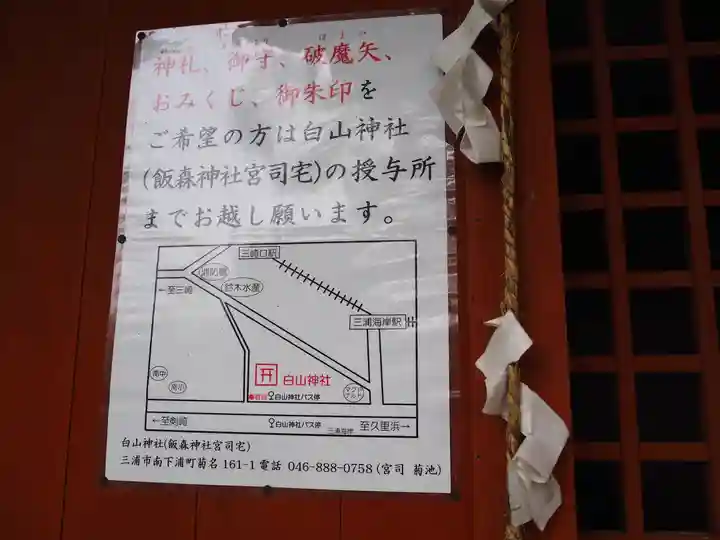 神札、御守、破魔矢、
おみくじ、御朱印を
ご希望の方は白山神社
(飯森神社宮司宅)の授与所
までお越し願います。
三崎口駅
消防署
←至三崎
鈴木水産
三浦海岸駅
南中
南小
白山神社
マクドナルド
白山神社バス停
←至剣崎
白山神社バス停
三浦海岸
至久里浜→
白山神社(飯森神社宮司宅)
三浦市南下浦町菊名 161-1 電話 046-888-0758 (宮司 菊池)